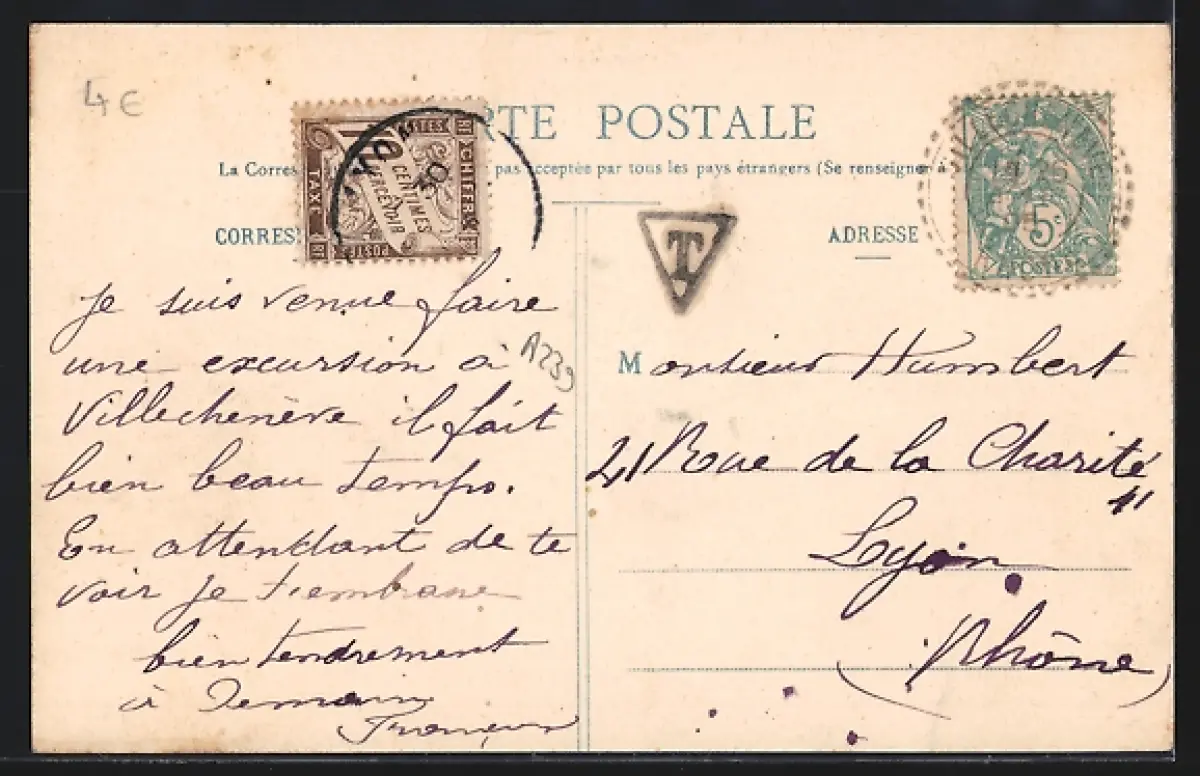 4€
CARTE POSTALE
La Corres pas acceptée par tous les pays étrangers (Se renseigner à
CORRES
ADRESSE
POSTES
CHIFFRE
TAXE
10
CENTIMES
PERCEVOIR
POSTES
T
5c
POSTES
je suis venue faire
une excursion à
Villechenève il fait
bien beau temps.
En attendant de te
voir je t'embrasse
bien tendrement
à Demain
A239
Monsieur Humbert
41 Rue de la Charité
41
Lyon
(Rhône)